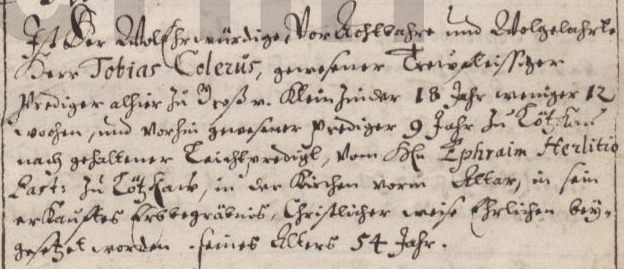 Ist Der WolEhrwürdige, Vor Achtbahre und Wolgelahrte
Herr Tobias Colerus, gewesener Trewfleissiger
Prediger alhier zu Groß v. Klein 18 Jahr weniger 12
wochen, und vorhin gewesener Prediger 9 Jahr zu
nach gehaltener Leichpredigt, vom Hn Ephraim Herlitio
Past: zu, in der Kirchen vorm Altar, in sein
erkaufftes Erbbegräbnis, Christlicher weise Ehrlichen bey-
gesetzet worden. seines Alters 54 Jahr.